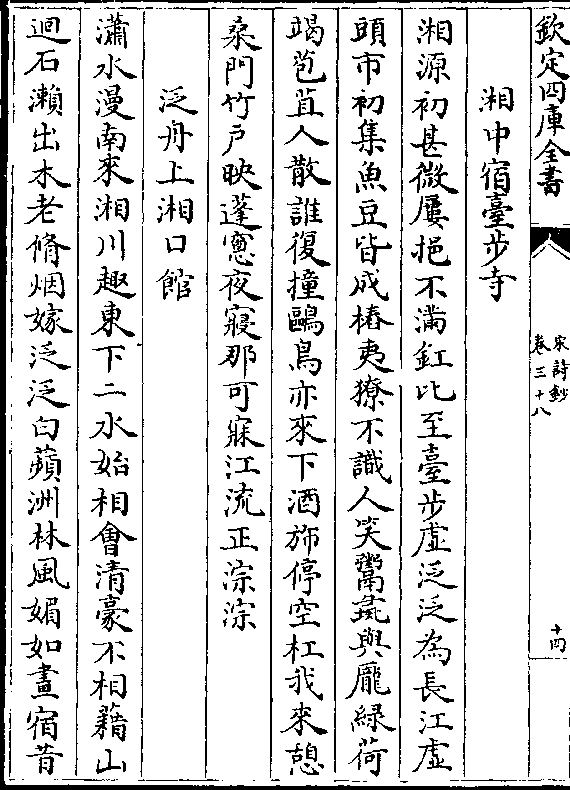 欽定四庫全書
宋詩鈔
卷三十八
十四
湘中宿臺步寺
湘源初甚微屢挹不滿釭比至臺步虛泛泛為長江虛
頭市初集魚豆皆成樁夷獠不識人笑鬻彘與厖綠荷
竭苞苴人散誰復撞鷗鳥亦來下酒斾停空杠我來憩
桑門竹戶映蓬窻夜寢那可寐江流正淙淙
泛舟上湘口館
瀟水漫南來湘川趣東下二水始相會清豪不相藉山
迴石瀨出木老脩烟嫁泛泛白蘋洲林風媚如畫宿昔